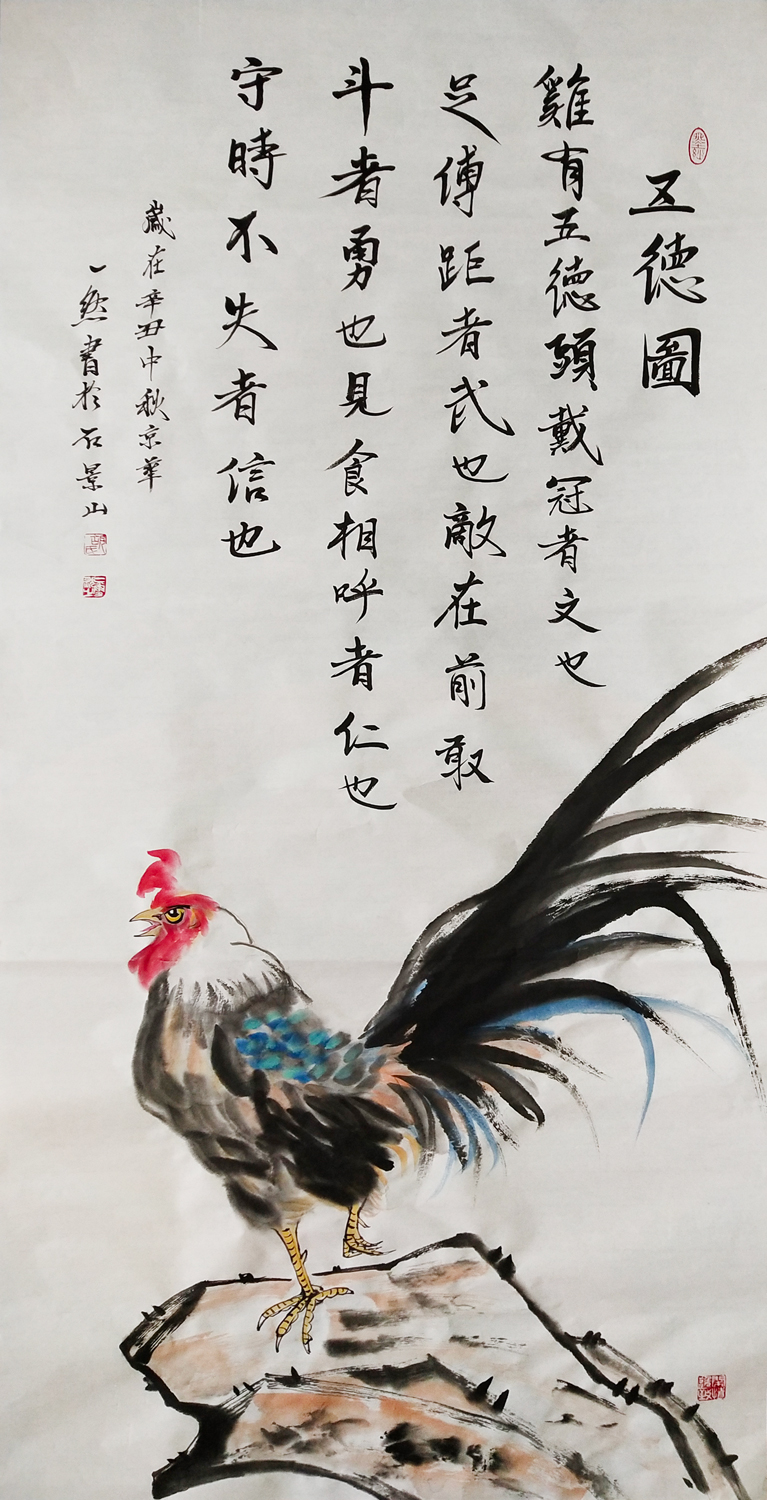 五德圖
雞有五德頭戴冠者文也
足傅距者武也敵在前敢
斗者勇也見食相呼者仁也
守時不失者信也
歲在辛丑中秋京華
一然書於石景山